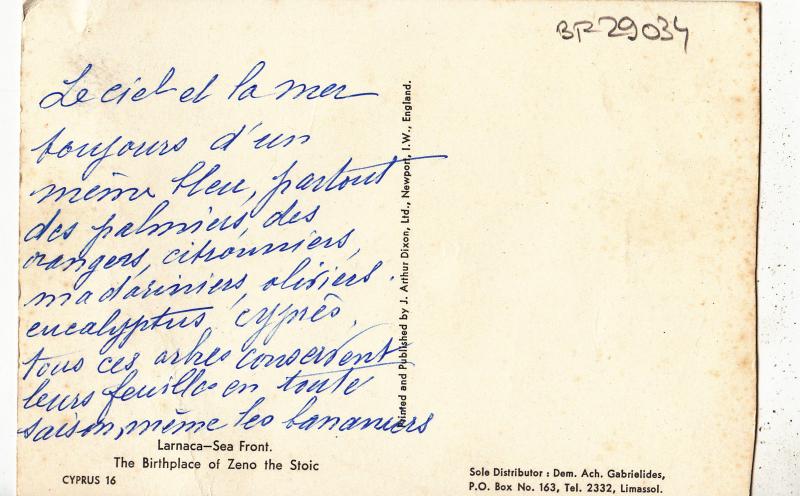 BP-29034
Le ciel et la mer
toujours d'un
même bleu, partout
des palmiers, des
orangers, citronniers,
madariniers, oliviers.
eucalyptus, cyprès,
tous ces arbres conservent
leurs feuilles en toute
saison, même les bananiers
Printed and Published by J. Arthur Dixon, Ltd., Newport, I.W., England.
Larnaca—Sea Front.
The Birthplace of Zeno the Stoic
CYPRUS 16
Sole Distributor : Dem. Ach. Gabrielides,
P.O. Box No. 163, Tel. 2332, Limassol.